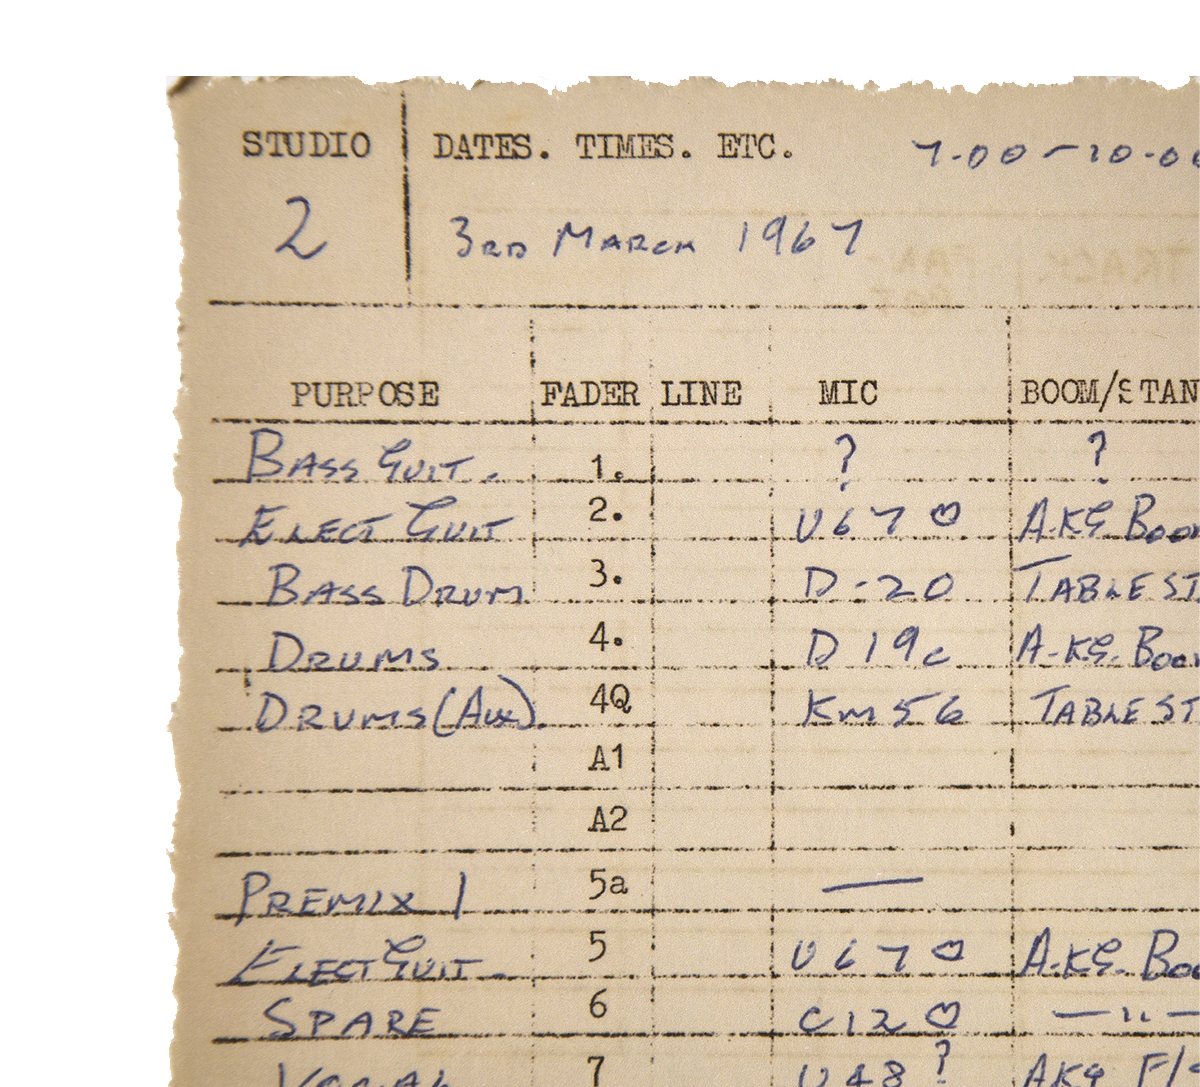 STUDIO DATES. TIMES. ETC. 7.00 - 10.00
2 3RD MARCH 1967
PURPOSE FADER LINE MIC BOOM/STAN
BASS GUIT. 1. ? ?
ELECT GUIT 2. U67 ♡ A.KG BOOM
BASS DRUM 3. D-20 TABLE ST.
DRUMS 4. D19c A-KG. BOOM
DRUMS (AUX). 4Q KM56 TABLE ST
A1
A2
PREMIX 1 5a —
ELECT GUIT. 5 U67 ♡ A.KG. BOO
SPARE 6 C12 ♡ — " —
VOCAL 7 U48 ? AKG F/S